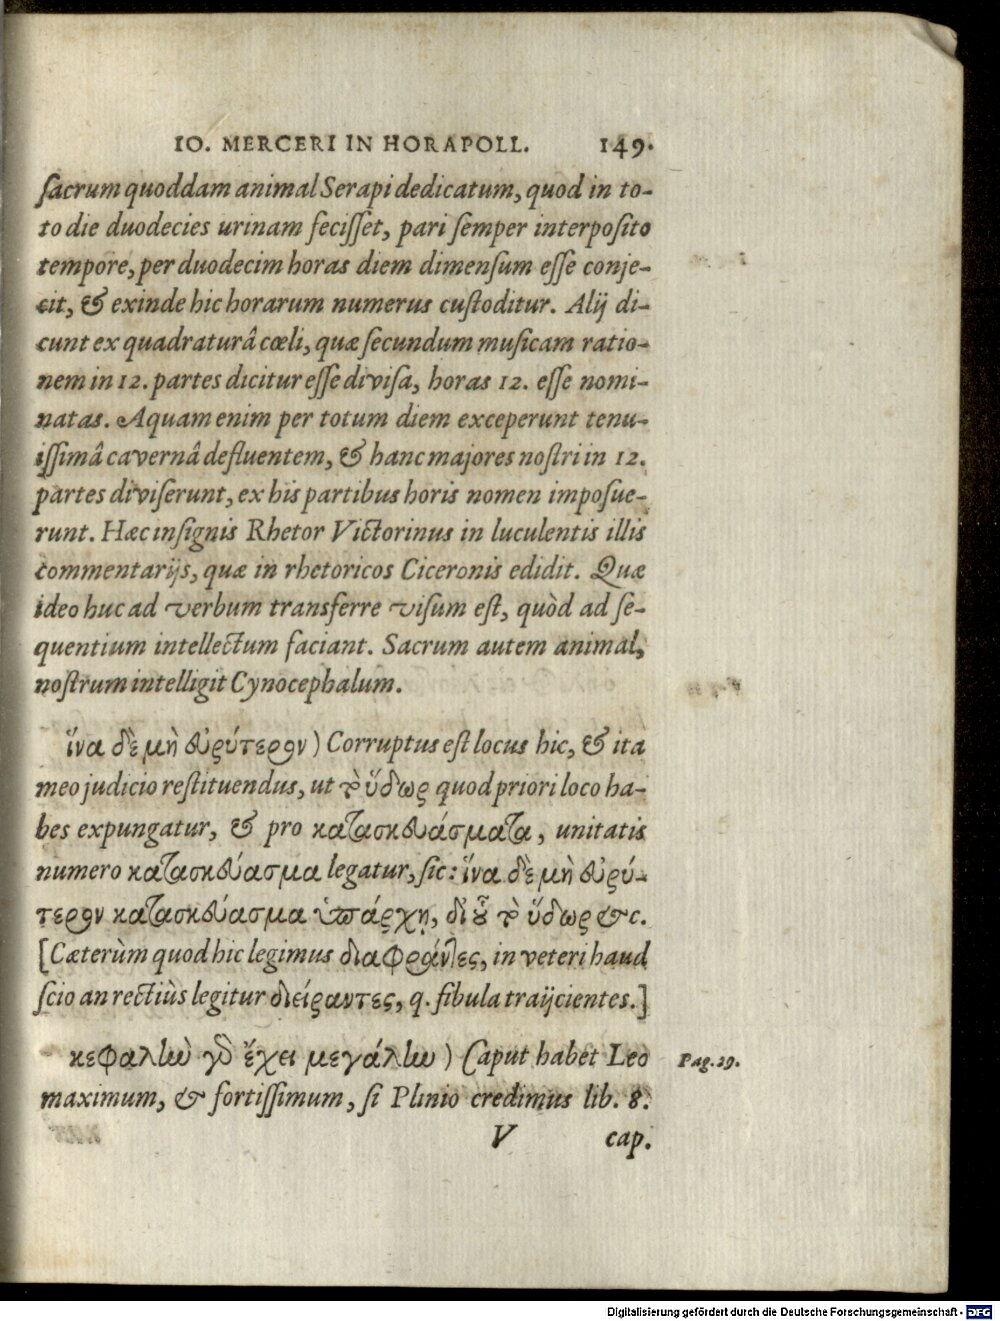 IO. MERCERI IN HORAPOLL. 149.
sacrum quoddam animal Serapi dedicatum, quod in to-
to die duodecies urinam fecisset, pari semper interposito
tempore, per duodecim horas diem dimensum esse conje-
cit, & exinde hic horarum numerus custoditur. Alij di-
cunt ex quadraturâ cœli, quæ secundum musicam ratio-
nem in 12. partes dicitur esse divisa, horas 12. esse nomi-
natas. Aquam enim per totum diem exceperunt tenu-
issimâ cavernâ defluentem, & hanc majores nostri in 12.
partes diviserunt, ex his partibus horis nomen imposue-
runt. Hæc insignis Rhetor Victorinus in luculentis illis
commentarijs, quæ in rhetoricos Ciceronis edidit. Quæ
ideo huc ad verbum transferre visum est, quòd ad se-
quentium intellectum faciant. Sacrum autem animal,
nostrum intelligit Cynocephalum.
ἵνα δὲ μὴ εὐρύτερον) Corruptus est locus hic, & ita
meo judicio restituendus, ut τὸ ὕδωρ quod priori loco ha-
bes expungatur, & pro κατασκευάσματα, unitatis
numero κατασκεύασμα legatur, sic: ἵνα δὲ μὴ εὐρύ-
τερον κατασκεύασμα ὑπάρχη, δι οὗ τὸ ὕδωρ &c.
[Cæterùm quod hic legimus διαφράντες, in veteri haud
scio an rectiùs legitur διείραντες, q. fibula traijcientes.]
κεφαλὴν γὸ ἔχει μεγάλην) Caput habet Leo
Pag. 29.
maximum, & fortissimum, si Plinio credimus lib. 8.
V cap.
Digitalisierung gefördert durch die Deutsche Forschungsgemeinschaft - DFG